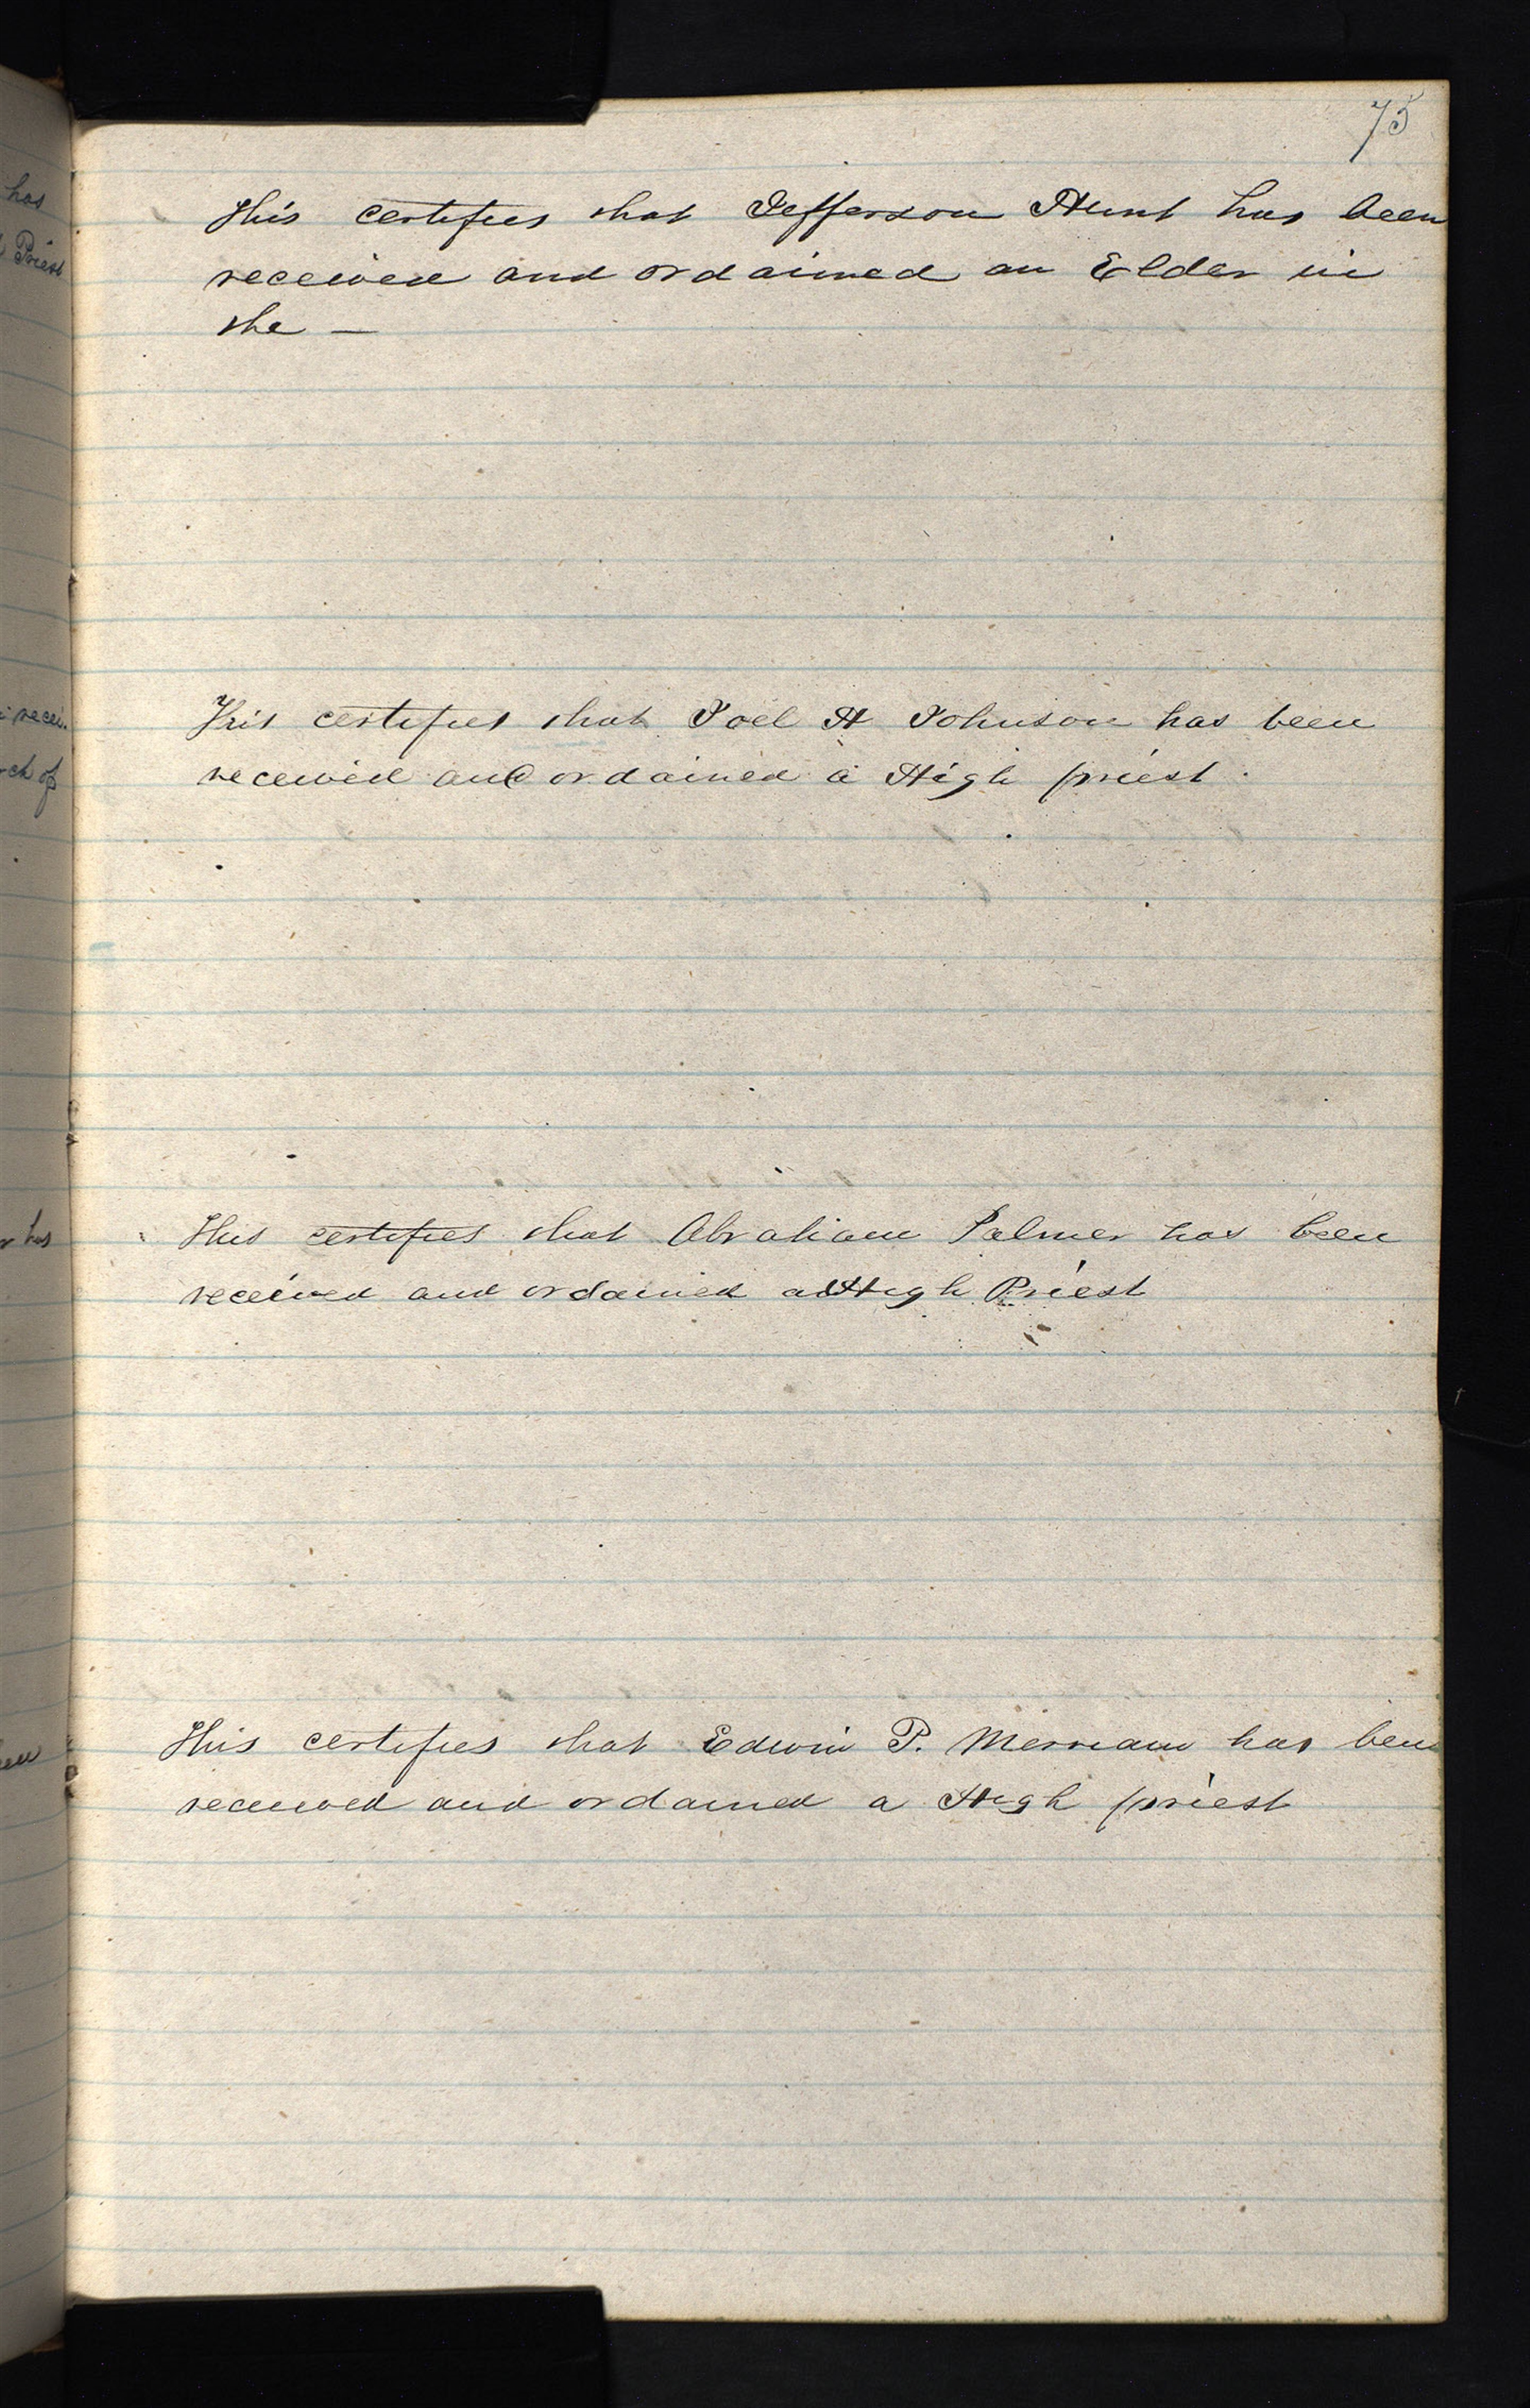 75
This certifies that Jefferson Hunt has been
received and ordained an Elder in
the —
This certifies that Joel H Johnson has been
received and ordained a High priest.
This certifies that Abraham Palmer has been
received and ordained a High Priest
This certifies that Edwin P. Merriam has been
received and ordained a High priest
has
Priest
recei-
rch of
has